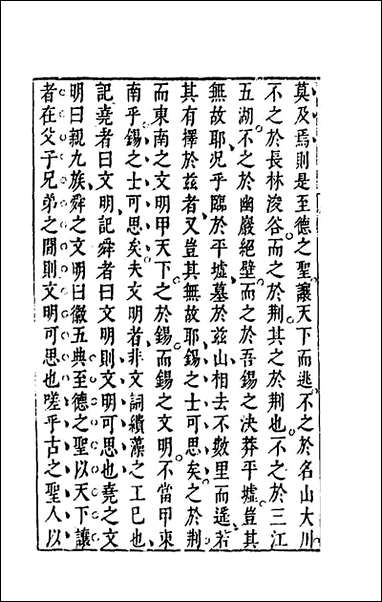 莫及焉則是至德之聖讓天下而逃不之於名山大川
不之於長林浚谷而之於荆其之於荆也不之於三江
五湖不之於幽巖絕壁而之於吾錫之泱莽平墟豈其
無故耶况乎臨於平墟墓於兹山相去不數里而遥若
其有擇於兹者又豈其無故耶錫之士可思矣之於荆
而東南之文明甲天下之於錫而錫之文明不當甲東
南乎錫之士可思矣夫文明者非文詞繢藻之工已也
記堯者曰文明記舜者曰文明則文明可思也堯之文
明曰親九族舜之文明曰徽五典至德之聖以天下讓
者在父子兄弟之間則文明可思也嗟乎古之聖人以